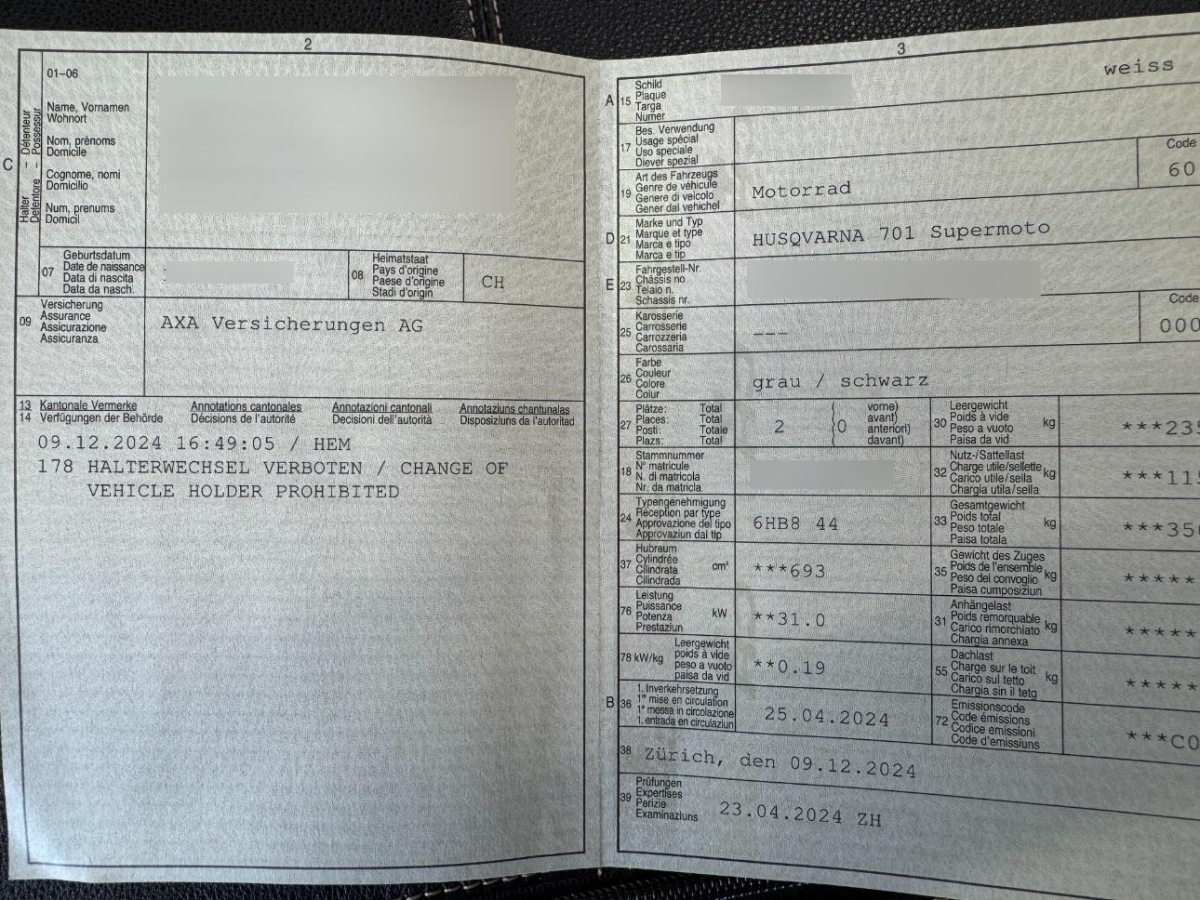 2
01-06
Name, Vornamen
Wohnort
Nom, prénoms
Domicile
Cognome, nomi
Domicilio
Num, prenums
Domicil
C
Halter – Détenteur
Detentore – Possessur
07
Geburtsdatum
Date de naissance
Data di nascita
Data da nasch.
08
Heimatstaat
Pays d'origine
Paese d'origine
Stadi d'origin
CH
09
Versicherung
Assurance
Assicurazione
Assicuranza
AXA Versicherungen AG
13 Kantonale Vermerke Annotations cantonales Annotazioni cantonali Annotaziuns chantunalas
14 Verfügungen der Behörde Décisions de l'autorité Decisioni dell'autorità Disposiziuns da l'autoritad
09.12.2024 16:49:05 / HEM
178 HALTERWECHSEL VERBOTEN / CHANGE OF
VEHICLE HOLDER PROHIBITED
3
weiss
A 15
Schild
Plaque
Targa
Numer
17
Bes. Verwendung
Usage spécial
Uso speciale
Diever spezial
Code
60
19
Art des Fahrzeugs
Genre de véhicule
Genere di veicolo
Gener dal vehichel
Motorrad
D 21
Marke und Typ
Marque et type
Marca e tipo
Marca e tip
HUSQVARNA 701 Supermoto
E 23
Fahrgestell-Nr.
Châssis no
Telaio n.
Schassis nr.
25
Karosserie
Carrosserie
Carrozzeria
Carossaria
---
Code
000
26
Farbe
Couleur
Colore
Colur
grau / schwarz
27
Plätze: Total
Places: Total
Posti: Totale
Plazs: Total
2
0
vorne)
avant)
anteriori)
davant)
30
Leergewicht
Poids à vide
Peso a vuoto
Paisa da vid
kg
***235
18
Stammnummer
N° matricule
N. di matricola
Nr. da matricla
32
Nutz-/Sattellast
Charge utile/sellette
Carico utile/sella
Chargia utila/sella
kg
***115
24
Typengenehmigung
Réception par type
Approvazione del tipo
Approvaziun dal tip
6HB8 44
33
Gesamtgewicht
Poids total
Peso totale
Paisa totala
kg
***350
37
Hubraum
Cylindrée
Cilindrata
Cilindrada
cm³
***693
35
Gewicht des Zuges
Poids de l'ensemble
Peso del convoglio
Paisa cumposiziun
kg
*****
76
Leistung
Puissance
Potenza
Prestaziun
kW
**31.0
31
Anhängelast
Poids remorquable
Carico rimorchiato
Chargia annexa
kg
*****
78 kW/kg
Leergewicht
poids à vide
peso a vuoto
paisa da vid
**0.19
55
Dachlast
Charge sur le toit
Carico sul tetto
Chargia sin il tetg
kg
*****
B 36
1. Inverkehrsetzung
1re mise en circulation
1a messa in circolazione
1. entrada en circulaziun
25.04.2024
72
Emissionscode
Code émissions
Codice emissioni
Code d'emissiuns
***C0
38
Zürich, den 09.12.2024
39
Prüfungen
Expertises
Perizie
Examinaziuns
23.04.2024 ZH